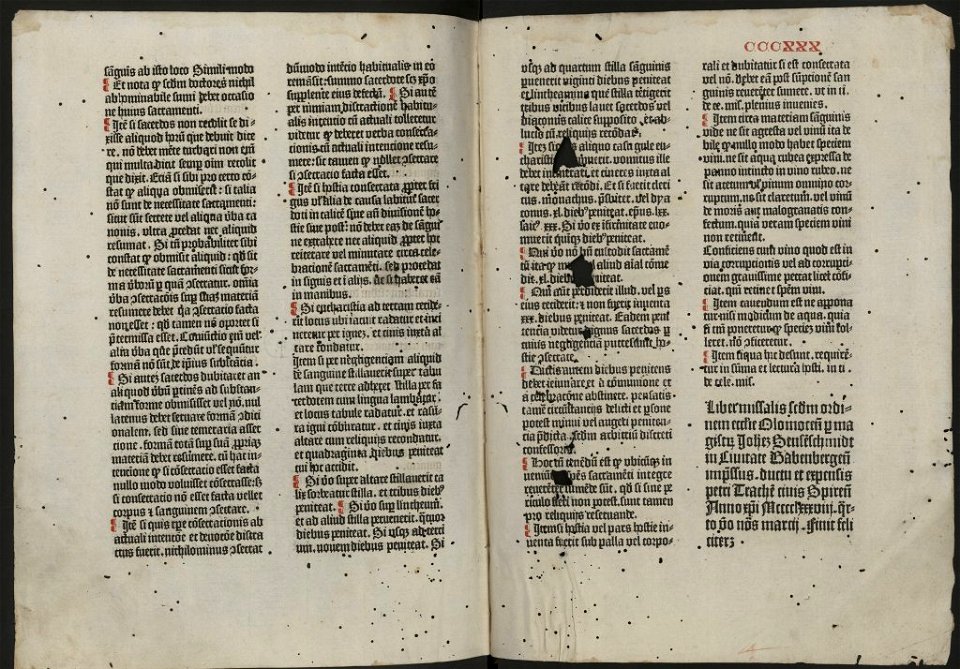 sãguis ab isto loco Simili modo
¶ Et nota ꝙ scd̃m doctores nichil
abhominabile sumi debet occasio
ne huius sacramenti.
¶ Itẽ si sacerdos non recolit se di-
xisse aliquod horũ que debuit dice
re. nõ debet mẽte turbari non enĩ
qui multa dicit semp oĩm recolit
que dixit. Etiã si sibi pro certo cõ-
stat ꝙ aliqua obmiserit: si talia
nõ sunt de necessitate sacramenti:
sicut sũt secrete vel aliqua ꝟba ca
nonis. vltra procedat nec aliquid
resumat. Si tñ probabiliter sibi
constat ꝙ obmisit aliquid: qd̃ sit
de necessitate sacramenti sicut for-
ma ꝟborũ ꝑ quã ꝯsecratur. omĩa
ꝟba ꝯsecratiõis suꝑ suã materiã
resumere debet qꝛ ꝯsecratio facta
non esset: qd̃ tamen nõ oportet si
ꝑ̃termissa esset. Coniũctio eĩm vel
alia ꝟba que precedũt vel sequũtur
formã nõ sũt de ip̃ius substãtia.
¶ Si autẽ sacerdos dubitaret an
aliquod ꝟbũ ꝑtinẽs ad substan-
tiam forme obmisisset vel nõ. nul
latenus debet seruare formã ꝯditi
onalem. sed sine temeraria asser
tione. formã totã suꝑ suã ꝓpriaꝫ
materiã debet resumere. cũ hac in-
tencione ꝙ si cõsecratio esset facta
nullo modo voluisset cõsecrasse: sꝫ
si consecratio nõ esset facta vellet
corpus ⁊ sanguinem ꝯsecrare.
¶ Itẽ si quis tꝑe cõsecrationis ab
actuali intencõe et deuocõe distra
ctus fuerit. nichilominus ꝯsecrat
dũmodo intẽcio habitualis in eo
remãsit: summo sacerdote scꝫ xp̃o
supplente eius defectũ. ¶ Si autẽ
per nimiam distractionẽ habitu-
alis intentio cũ actuali tolleretur
videtur ꝙ deberet verba consecra-
cionis cũ actuali intencione resu-
mere: sic tamen ꝙ nollet ꝯsecrare
si consecratio facta esset.
¶ Itẽ si hostia consecrata propter fri
gus vel alia de causa labatur sacer
doti in calicẽ siue añ diuisionẽ ho-
stie siue post: nõ debet eaꝫ de sãgui
ne extrahere nec aliquid propter hoc
reiterare vel minutare circa cele-
bracionẽ sacramẽti. sed procedat
in signis et ĩ alijs. ac si haberet eã
in manibus.
¶ Si eucharistia ad terram cecide-
rit locus vbi iacuit radatur et inci
neretur per ignem. et cinis iuxta al
tare condatur.
Item si per negligenciam aliquid
de sanguine stillauerit super tabu
lam que terre adheret stilla per sa
cerdotem cum lingua lambatur.
et locus tabule radatur. et rasu-
ra igni cõburatur. et cinis iuxta
altare cum reliquijs recondatur.
et quadraginta diebus peniteat
cui hoc accidit.
¶ Si ꝟo super altare stillauerit ca
lix sorbeatur stilla. et tribus diebꝰ
peniteat. ¶ Si ꝟo suꝑ lintheum.
et ad aliud stilla peruenerit. q̃tuor
diebus peniteat. Si vsqꝫ ad terci
um. nouem diebus peniteat. Si
CCCXXX
vsqꝫ ad quartum stilla sãguinis
puenerit viginti diebus peniteat
et lintheamina que stilla tetigerit
tribus vicibus lauet sacerdos vel
diaconus calice supposito et ab-
lucio cũ reliquijs recõdat.
¶ Itẽ si aliquo casu gule eu-
charistiã vomitus ille
debet et cineres iuxta al
tare debẽt recõdi. Et si fuerit cleri
cus. monachus. p̃sbiter. vel dya
conus. xl. diebꝰ peniteat. ep̃us. lxx.
laicꝰ xxx. Si ꝟo ex ĩfirmitate euo-
muerit quĩqꝫ diebꝰ peniteat.
¶ Qui ꝟo nõ bñ custodit sacramẽ
tũ ita ꝙ mus vel aliud aĩal come
dit. xl. diebus peniteat.
¶ Qui aũt perdiderit illud. vel ꝑs
eius ceciderit: ⁊ non fuerit inuenta
xxx. diebus peniteat. Eadem peni
tencia videtur dignus sacerdos ꝑ
cuius negligencia putrescunt ho-
stie ꝯsecrate.
¶ Dictis autem diebus penitens
debet ieiunare et a cõmunione et
a celebracõne abstinere. pensatis
tamẽ circũstancijs delicti et ꝑsone
potest minui vel augeri penitenti-
cia p̃dicta. scd̃m arbitriũ discreti
confessoris.
¶ Hoc tñ tenẽdũ est ꝙ vbicũqꝫ in
ueniunt̃ ꝑes sacramẽti integre
reuerẽter sumẽde sũt. qd̃ si sine pe
riculo fieri non potest. sunt tamen
pro reliquijs reseruande.
¶ Item si hostia vel pars hostie in-
uenta fuerit sub palla vel corpo-
rali et dubitatur si est consecrata
vel nõ. debet eam post sũptionẽ san
guinis reuerẽter sumere. vt in ti.
de ce. mis. plenius inuenies.
¶ Item circa materiam sãguinis
vide ne sit agresta vel vinũ ita de
bile ꝙ nullo modo habet speciem
vini. ne sit aqua rubea expressa de
panno intincto in vino rubeo. ne
sit acetum vel vinum omnino cor-
ruptum. ne sit claretum. vel vinũ
de moris aut malogranatis con-
fectum. quia veram speciem vini
non retinent.
Conficiens cum vino quod est in
via corrupcionis vel ad corrupci-
onem grauissime peccat licet cõfi-
ciat. quia retinet speĩem vini.
¶ Item cauendum est ne appona
tur nisi modicum de aqua. quia
si tñ poneretur ꝙ species vini tol-
leret. nõ ꝯficeretur.
¶ Item si qua hic desunt. require̾n-
tur in suma et lectura hosti. in ti
de cele. mis.
Liber missalis scd̃m ordi-
nem ecclesie Olomocen̄ ꝑ ma
gistrũ Joheꝫ Sensẽschmidt
in Ciuitate Babenbergen̄
imp̃ssus. ductu et expensis
petri Trachẽ ciuis Spireñ
Anno xp̃i Mcccclxxxviij. q̃r-
to ꝟo nõs marcij. Finit feli
citerꝫ